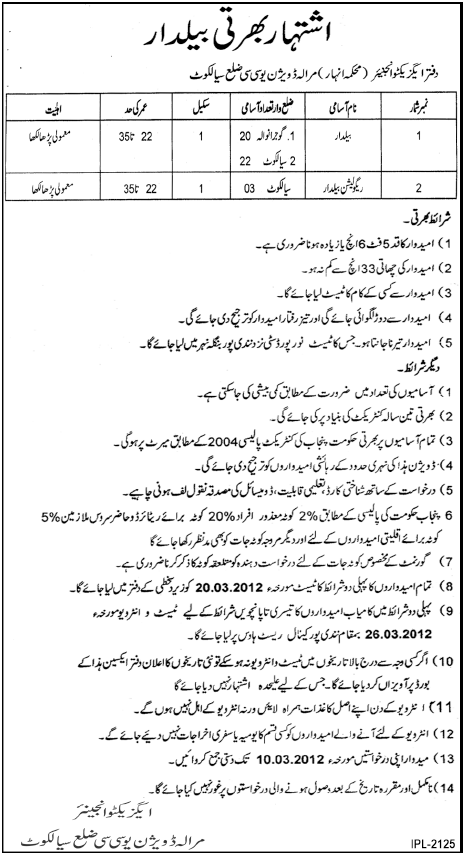 اشتہار بھرتی بیلدار
دفتر ایگزیکٹو انجینئر (محکمہ انہار) مرالہ ڈویژن یو سی سی ضلع سیالکوٹ
نمبر شمار نام آسامی ضلع وار تعداد آسامی سکیل عمر کی حد اہلیت
1 بیلدار 1. گوجرانوالہ 20 1 22 تا 35 معمولی پڑھا لکھا
2 سیالکوٹ 22
2 ریگولیشن بیلدار سیالکوٹ 03 1 22 تا 35 معمولی پڑھا لکھا
شرائط بھرتی۔
1) امیدوار کا قد 5 فٹ 6 انچ یا زیادہ ہونا ضروری ہے۔
2) امیدوار کی چھاتی 33 انچ سے کم نہ ہو۔
3) امیدوار سے کسی کے کام کا ٹیسٹ لیا جائے گا۔
4) امیدوار سے دوڑ لگوائی جائے گی اور تیز رفتار امیدوار کو ترجیح دی جائے گی۔
5) امیدوار تیرنا جانتا ہو۔ جس کا ٹیسٹ نور پور ڈسٹی نزد نندی پور بنگلہ نہر میں لیا جائے گا۔
دیگر شرائط۔
1) آسامیوں کی تعداد میں ضرورت کے مطابق کمی بیشی کی جا سکتی ہے۔
2) بھرتی تین سالہ کنٹریکٹ کی بنیاد پر کی جائے گی۔
3) تمام آسامیوں پر بھرتی حکومت پنجاب کی کنٹریکٹ پالیسی 2004 کے مطابق میرٹ پر ہو گی۔
4) ڈویژن ہذا کی نہری حدود کے رہائشی امیدواروں کو ترجیح دی جائے گی۔
5) درخواست کے ساتھ شناختی کارڈ، تعلیمی قابلیت، ڈومیسائل کی مصدقہ نقول لف ہونی چاہیے۔
6) پنجاب حکومت کی پالیسی کے مطابق 2% کوٹہ معذور افراد 20% کوٹہ برائے ریٹائرڈ و حاضر سروس ملازمین 5%
کوٹہ برائے اقلیتی امیدواروں کے لئے اور دیگر مروجہ کوٹہ جات کو بھی مدنظر رکھا جائے گا
7) گورنمنٹ کے مخصوص کوٹہ جات کے لئے درخواست دہندہ کو متعلقہ کوٹہ کا ذکر کرنا ضروری ہے۔
8) تمام امیدواروں کا پہلی دو شرائط کا ٹیسٹ مورخہ 20.03.2012 کو زیر دستخطی کے دفتر میں لیا جائے گا۔
9) پہلی دو شرائط میں کامیاب امیدواروں کا تیسری تا پانچویں شرائط کے لیے ٹیسٹ و انٹرویو مورخہ
26.03.2012 بمقام نندی پور کینال ریسٹ ہاؤس پر لیا جائے گا۔
10) اگر کسی وجہ سے درج بالا تاریخوں میں ٹیسٹ و انٹرویو نہ ہو سکے تو نئی تاریخوں کا اعلان دفتر ایکسین ہذا کے
بورڈ پر آویزاں کر دیا جائے گا۔ جس کے لیے علیحدہ اشتہار نہیں دیا جائے گا
11) انٹرویو کے دن اپنے اصل کاغذات ہمراہ لائیں ورنہ انٹرویو کے اہل نہیں ہوں گے۔
12) انٹرویو کے لئے آنے والے امیدواروں کو کسی قسم کا یومیہ یا سفری اخراجات نہیں دیئے جائے گے۔
13) میدوار اپنی درخواستیں مورخہ 10.03.2012 تک دستی جمع کروائیں۔
14) نامکمل اور مقررہ تاریخ کے بعد وصول ہونے والی درخواستوں پر غور نہیں کیا جائے گا۔
ایگزیکٹو انجینئر
مرالہ ڈویژن یو سی سی ضلع سیالکوٹ
IPL-2125